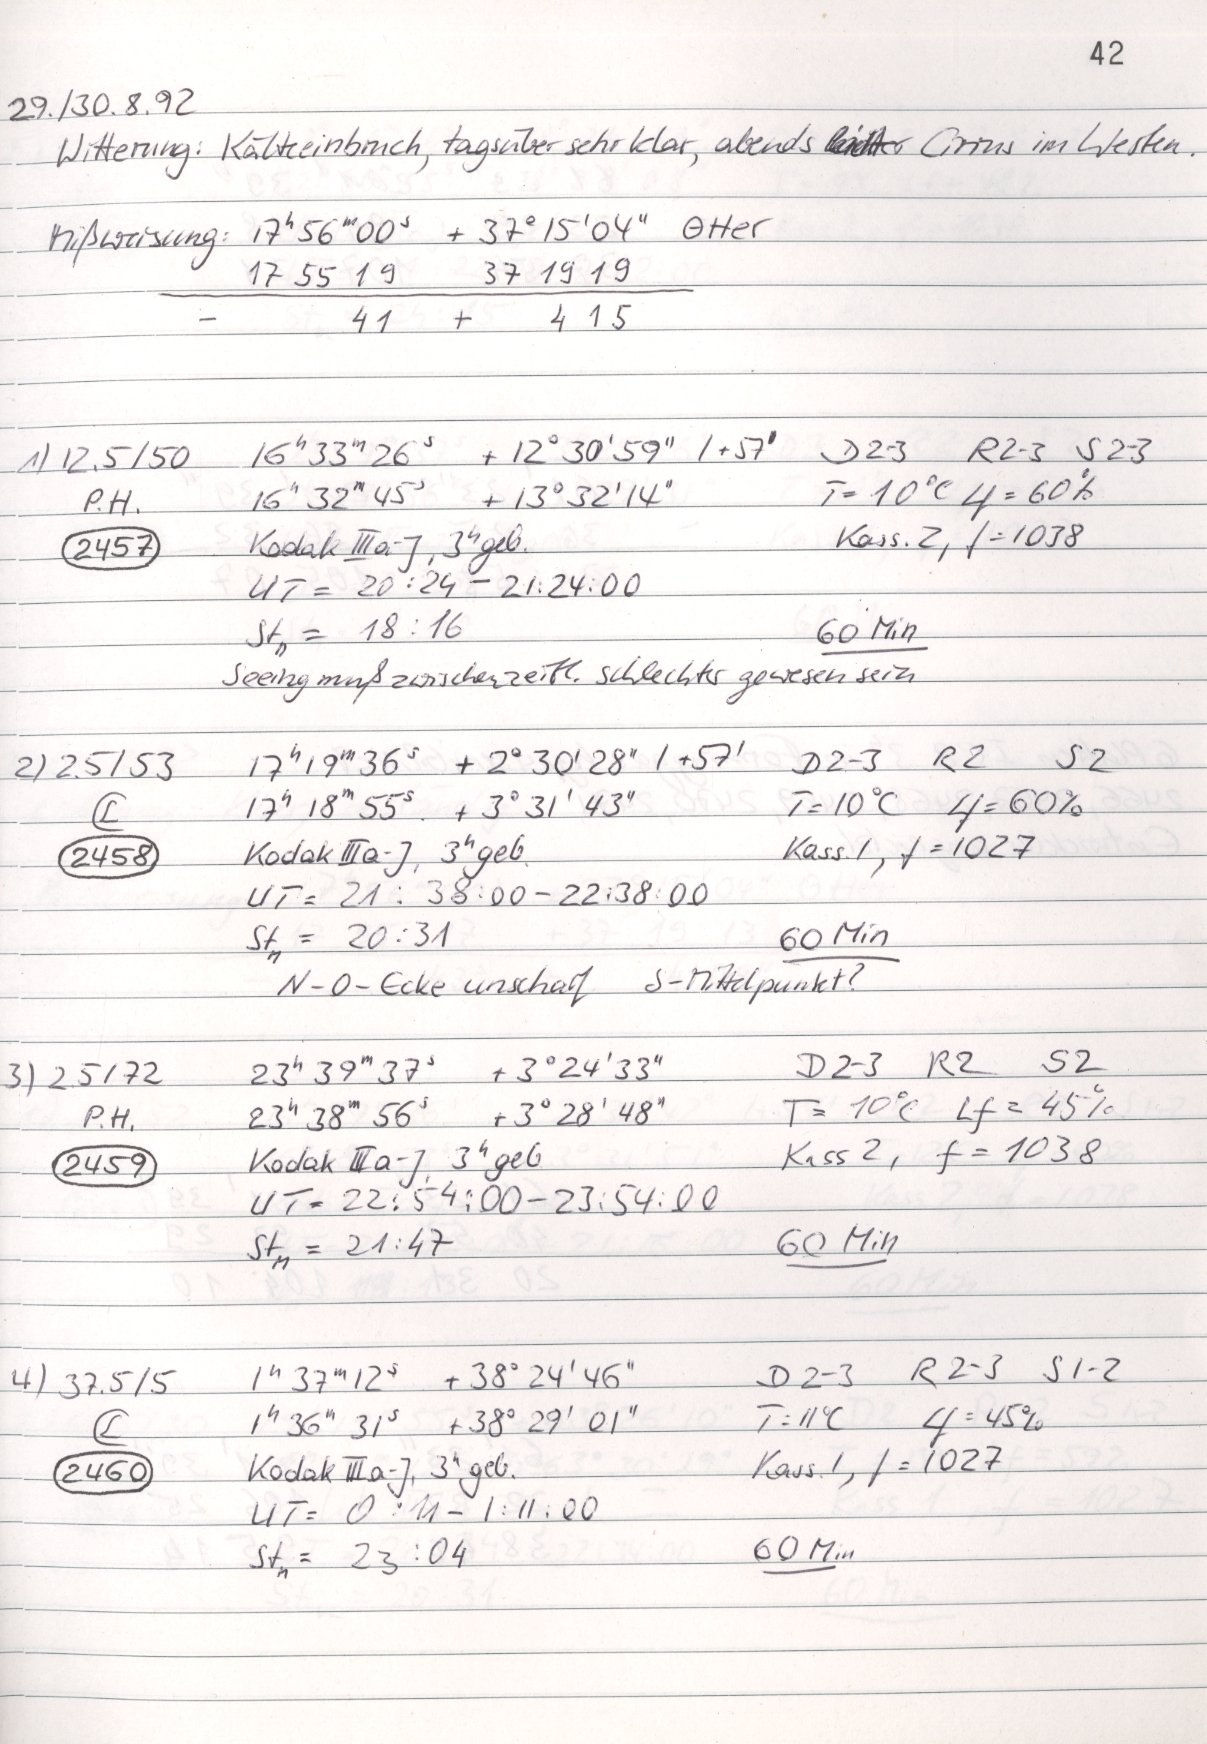 42
29./30.8.92
Witterung: Kälteeinbruch, tagsüber sehr klar, abends leichter Cirrus im Westen.
Mißweisung: 17ʰ56ᵐ00ˢ + 37°15'04" Otter
17 55 19 37 19 19
- 41 + 4 15
1) 12.5/50 16ʰ33ᵐ26ˢ +12°30'59" /+57' D2-3 R2-3 S2-3
P.H. 16ʰ32ᵐ45ˢ +13°32'14" T=10°C Lf=60%
2457 Kodak IIIa-J, 3ʰ geb. Kass. 2, f=1038
UT= 20:24 - 21:24:00
Stₙ = 18:16 60 Min
Seeing muß zwischenzeitl. schlechter gewesen sein
2) 2.5/53 17ʰ19ᵐ36ˢ +2°30'28" /+57' D2-3 R2 S2
17ʰ18ᵐ55ˢ +3°31'43" T=10°C Lf=60%
2458 Kodak IIIa-J, 3ʰ geb. Kass. 1, f=1027
UT= 21:38:00-22:38:00
Stₙ = 20:31 60 Min
N-O-Ecke unscharf S-Mittelpunkt?
3) 2.5/72 23ʰ39ᵐ37ˢ +3°24'33" D2-3 R2 S2
P.H. 23ʰ38ᵐ56ˢ +3°28'48" T= 10°C Lf=45%
2459 Kodak IIIa-J, 3ʰ geb Kass 2, f=1038
UT= 22:54:00-23:54:00
Stₙ = 21:47 60 Min
4) 37.5/5 1ʰ37ᵐ12ˢ +38°24'46" D2-3 R2-3 S1-2
1ʰ36ᵐ31ˢ +38°29'01" T=11°C Lf=45%
2460 Kodak IIIa-J, 3ʰ geb. Kass. 1, f=1027
UT= 0:11-1:11:00
Stₙ = 23:04 60 Min